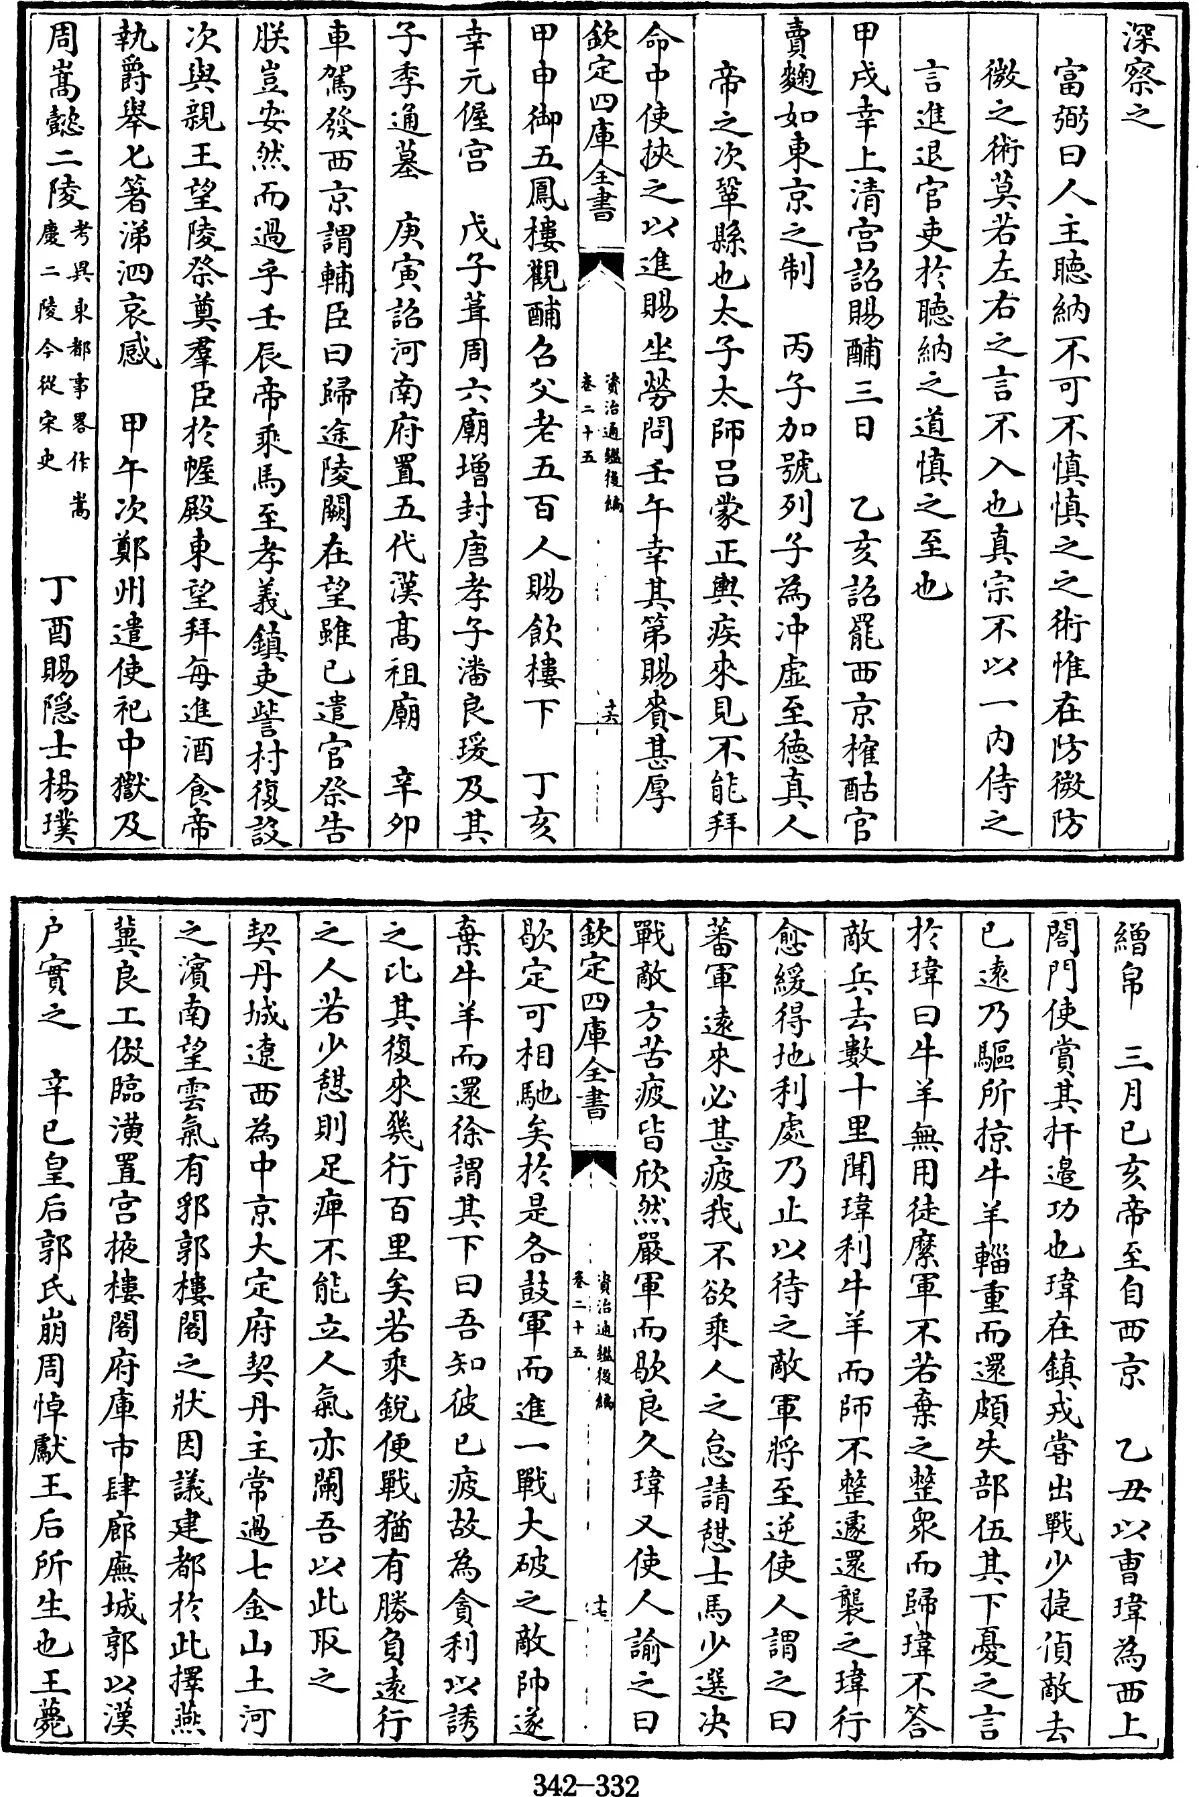 深察之
富弼曰人主聽納不可不慎慎之之術惟在防微防
微之術莫若左右之言不入也真宗不以一内侍之
言進退官吏於聽納之道慎之至也
甲戌幸上清宫詔賜酺三日　乙亥詔罷西京榷酤官
賣麴如東京之制　丙子加號列子為冲虚至徳真人
帝之次鞏縣也太子太師吕蒙正輿疾來見不能拜
命中使挾之以進賜坐勞問壬午幸其第賜賚甚厚
欽定四庫全書
資治通鑑後編
卷二十五
十六
甲申御五鳳樓觀酺召父老五百人賜飲樓下　丁亥
幸元偓宫　戊子葺周六廟增封唐孝子潘良瑗及其
子季通墓　庚寅詔河南府置五代漢髙祖廟　辛卯
車駕發西京謂輔臣曰歸途陵闕在望雖已遣官祭告
朕豈安然而過乎壬辰帝乘馬至孝義鎮吏訾村復設
次與親王望陵祭奠羣臣於幄殿東望拜每進酒食帝
執爵舉匕箸涕泗哀感　甲午次鄭州遣使祀中嶽及
周嵩懿二陵
考異東都事畧作嵩
慶二陵今從宋史
丁酉賜隐士楊璞
繒帛　三月己亥帝至自西京　乙丑以曹瑋為西上
閤門使賞其扞邉功也瑋在鎮戎嘗出戰少捷偵敵去
已逺乃驅所掠牛羊輜重而還頗失部伍其下憂之言
於瑋曰牛羊無用徒縻軍不若棄之整衆而歸瑋不答
敵兵去數十里聞瑋利牛羊而師不整遽還襲之瑋行
愈緩得地利處乃止以待之敵軍將至逆使人謂之曰
蕃軍逺來必甚疲我不欲乘人之怠請憩士馬少選决
戰敵方苦疲皆欣然嚴軍而歇良久瑋又使人諭之曰
欽定四庫全書
資治通鑑後編
卷二十五
十七
歇定可相馳矣於是各鼓軍而進一戰大破之敵帥遂
棄牛羊而還徐謂其下曰吾知彼已疲故為貪利以誘
之比其復來幾行百里矣若乘鋭便戰猶有勝負逺行
之人若少憩則足痺不能立人氣亦闌吾以此取之
契丹城遼西為中京大定府契丹主常過七金山土河
之濱南望雲氣有郛郭樓閣之狀因議建都於此擇燕
冀良工倣臨潢置宫掖樓閣府庫市肆廊廡城郭以漢
户實之　辛巳皇后郭氏崩周悼獻王后所生也王薨
342-332